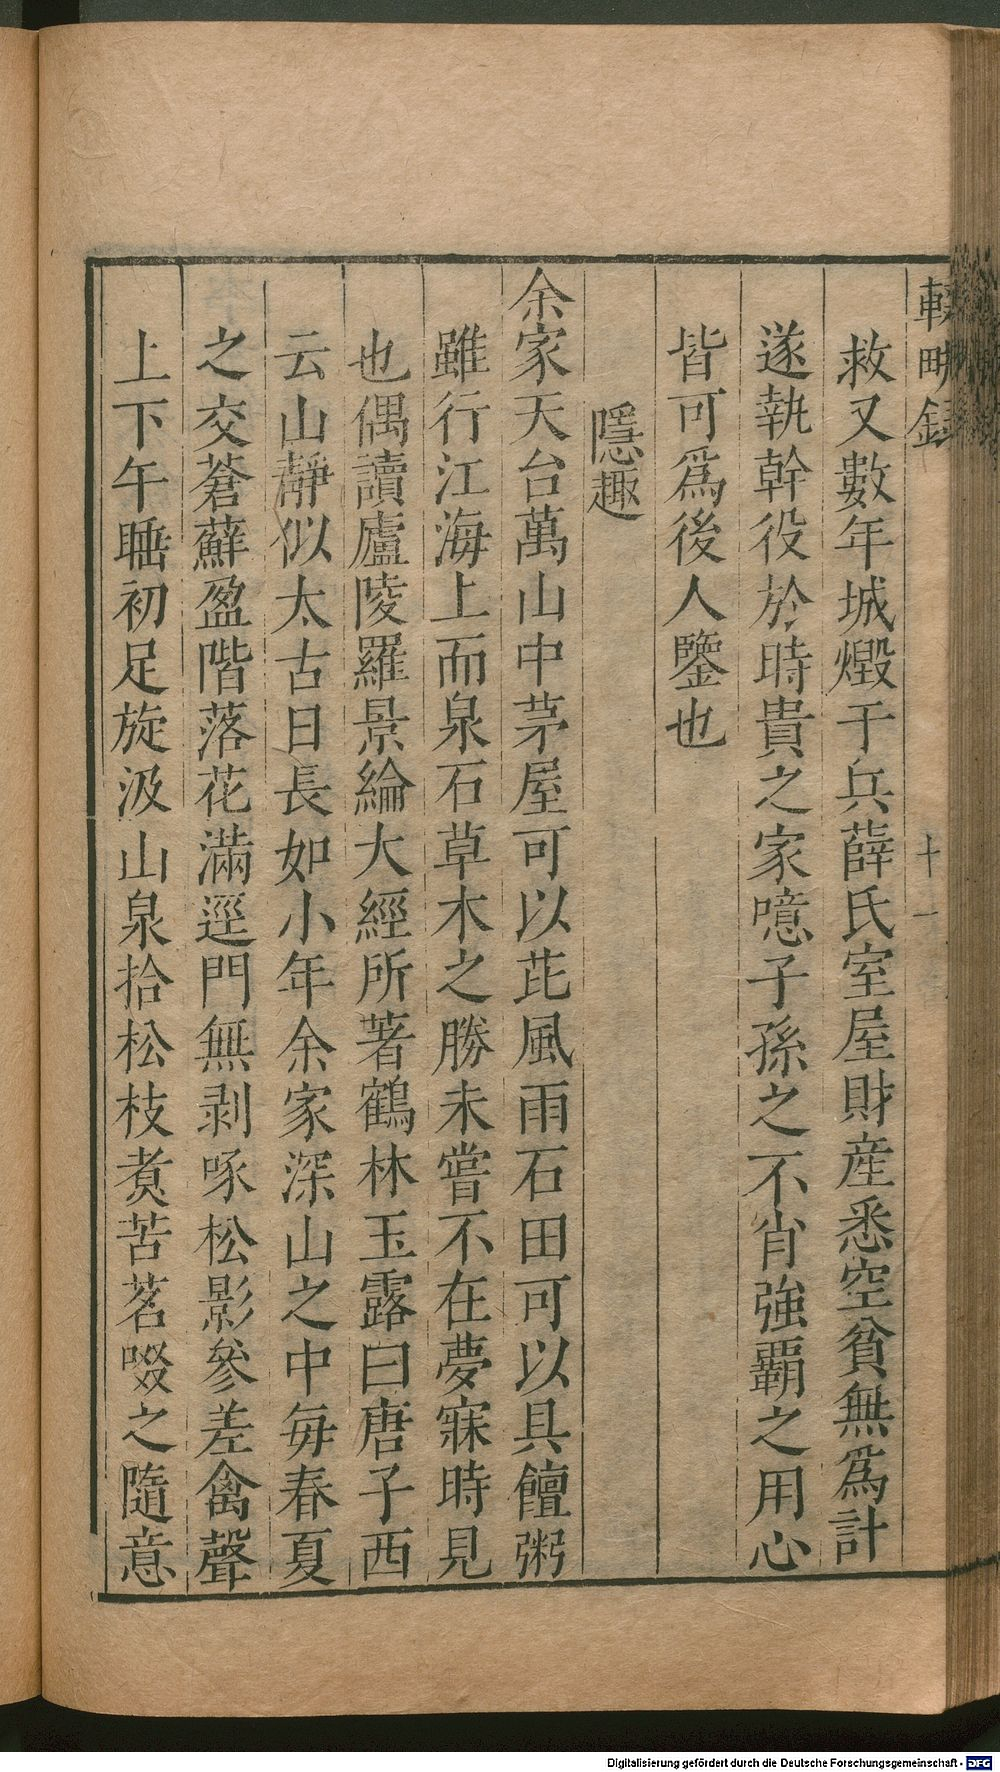 輟畊錄
十一
救又數年城燬于兵薛氏室屋財産悉空貧無爲計
遂執幹役於時貴之家噫子孫之不肖強覇之用心
皆可爲後人鑒也
隱趣
余家天台萬山中茅屋可以芘風雨石田可以具饘粥
雖行江海上而泉石草木之勝未嘗不在夢寐時見
也偶讀廬陵羅景綸大經所著鶴林玉露曰唐子西
云山靜似太古日長如小年余家深山之中毎春夏
之交蒼蘚盈階落花滿逕門無剥啄松影參差禽聲
上下午睡初足旋汲山泉拾松枝煑苦茗啜之隨意
Digitalisierung gefördert durch die Deutsche Forschungsgemeinschaft - DFG